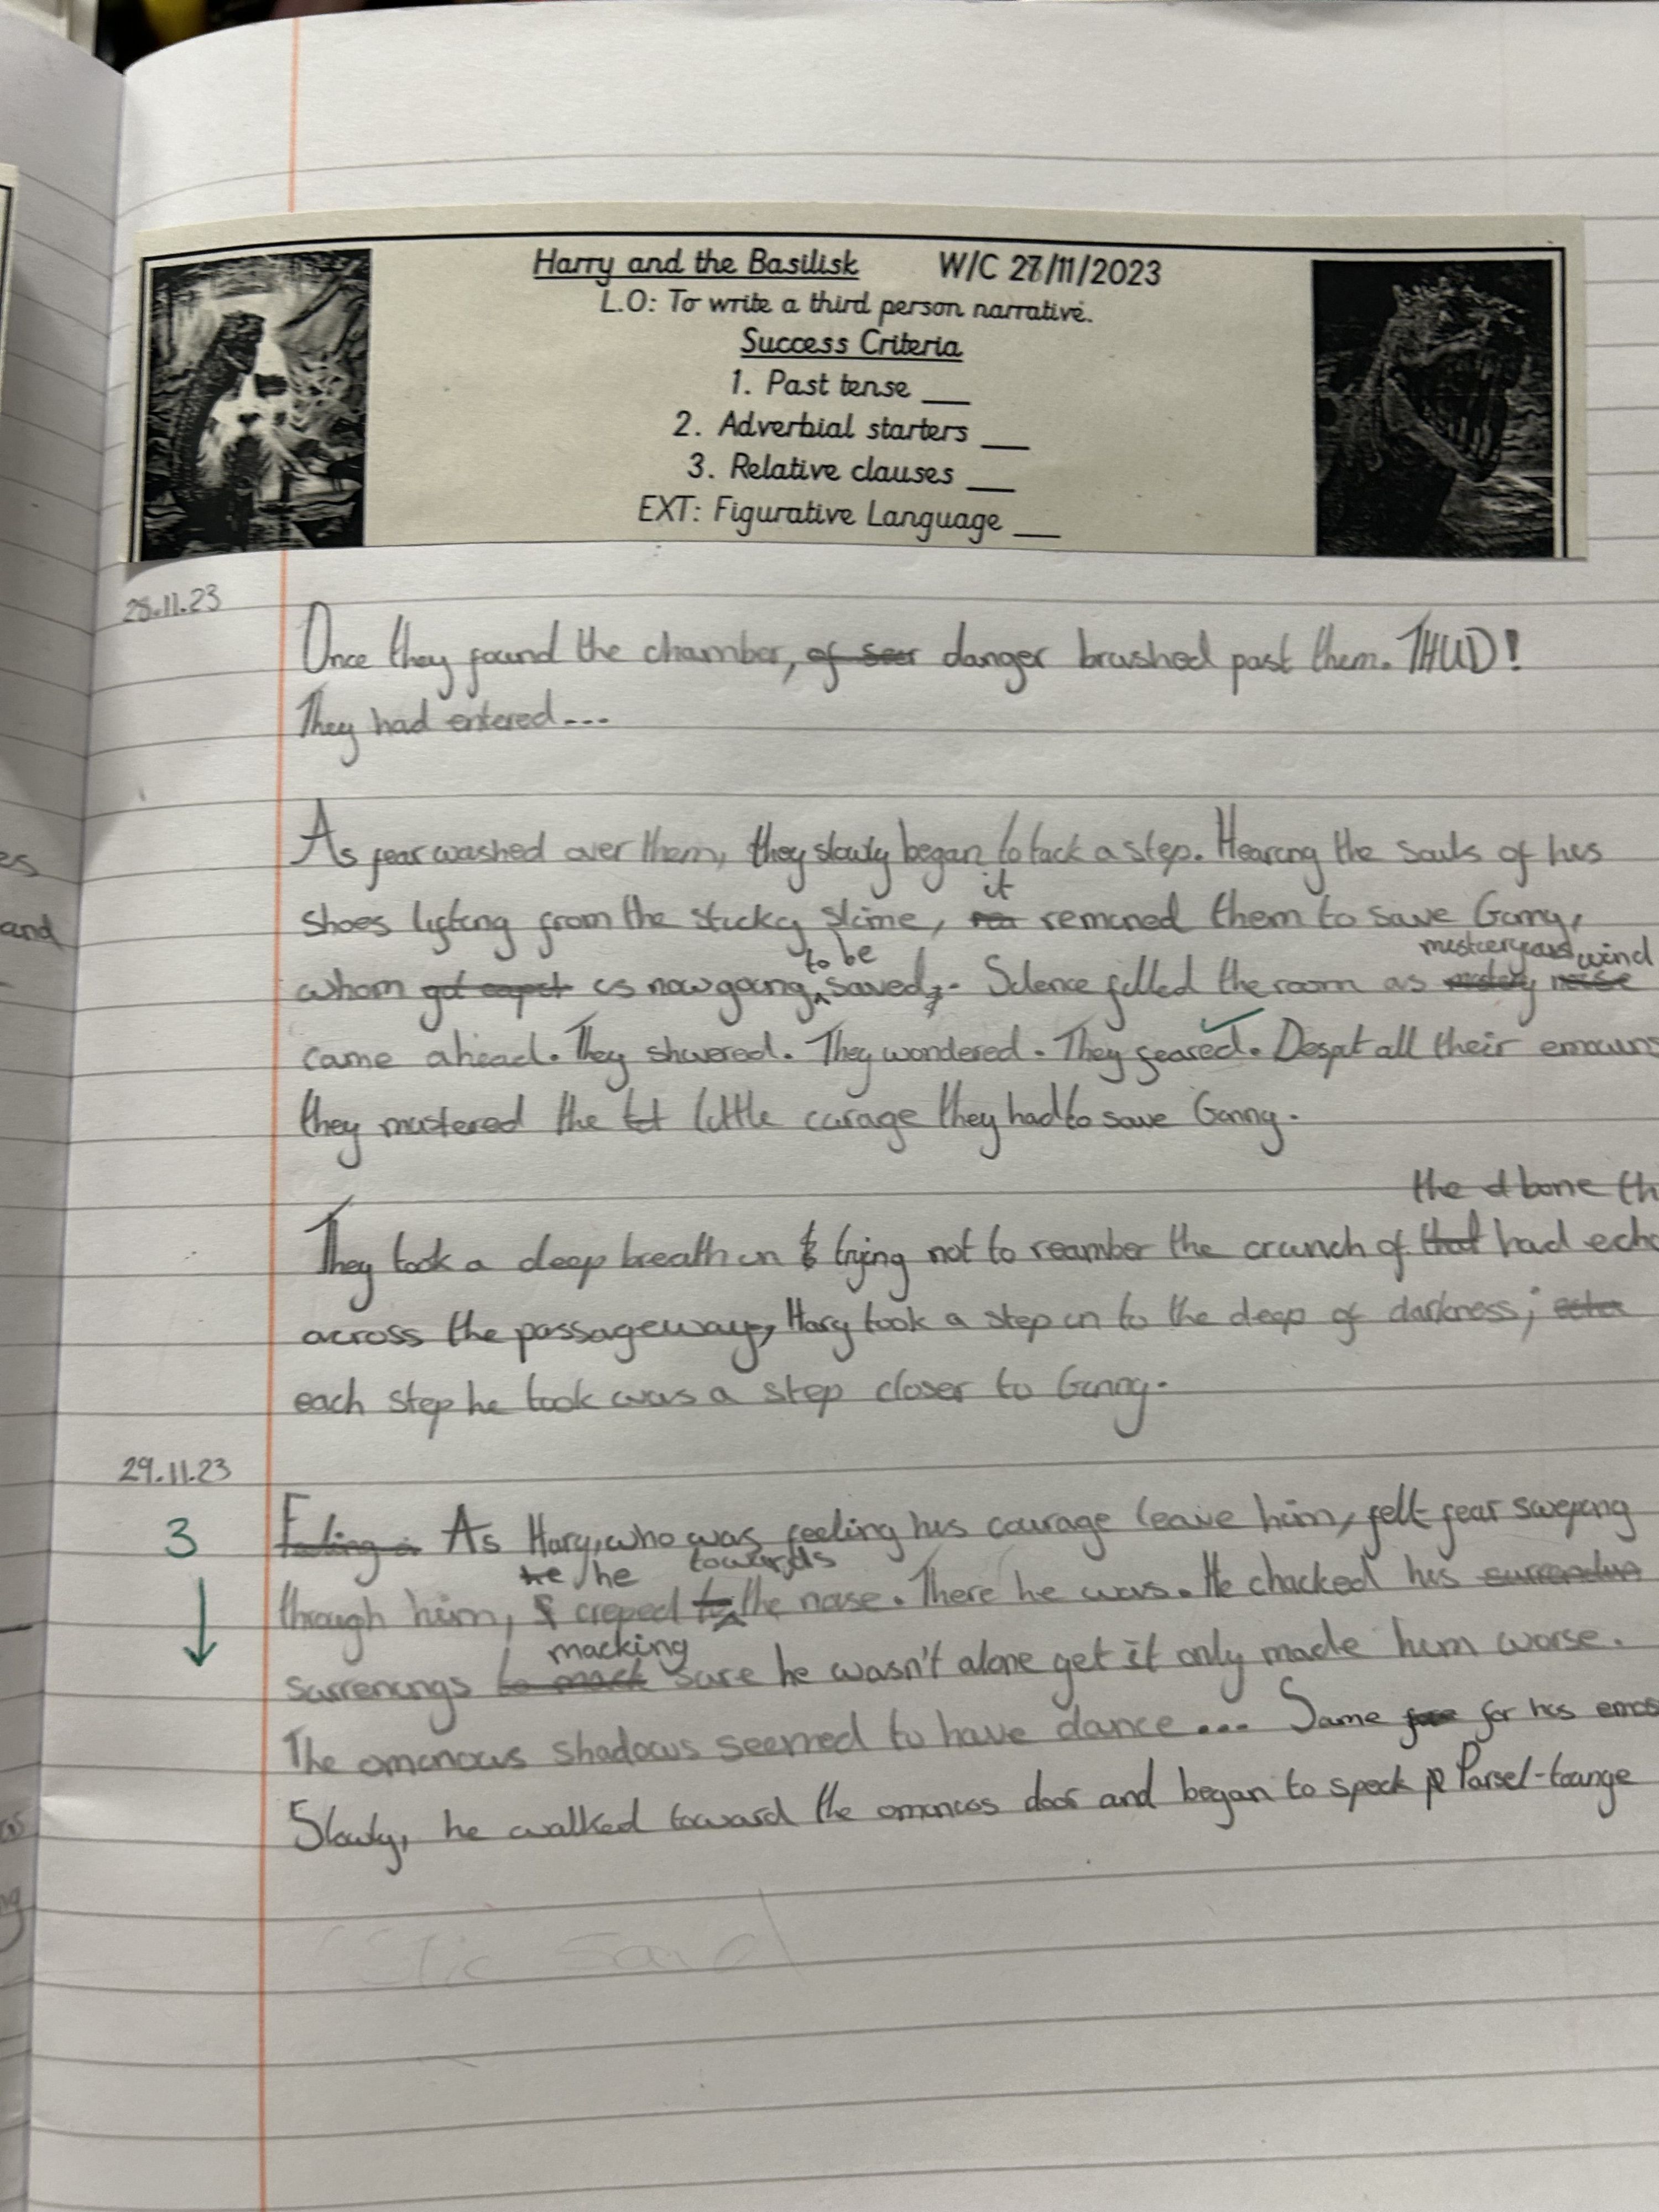 Harry and the Basilisk W/C 27/11/2023
L.O: To write a third person narrative.
Success Criteria
1. Past tense ___
2. Adverbial starters ___
3. Relative clauses ___
EXT: Figurative Language ___
28.11.23
Once they found the chamber, of danger brushed past them. THUD!
They had entered...
As fear washed over them, they slowly began to tack a step. Hearing the souls of his
es
it
shoes lifting from the sticky slime, remined them to save Ginny,
and
to be wind
whom got is now going saved. Silence filled the room as
came ahead. They shivered. They wondered. They feared. Despit all their
they mustered the little curage they had to save Ginny.
the d bone th
They took a deep breath in trying not to reamber the crunch of that had echo
across the passageway, Hary took a step in to the deep of darkness;
each step he took was a step closer to Ginny.
29.11.23
3 As Hary, who was feeling his courage leave him, felt fear sweping
he he towards
through him, creped the noise. There he was. He chacked his
macking
surrenings to mack sure he wasn't alone get it only made him worse.
The omonous shadows seemed to have dance... Same for his
Slowly, he walked toward the omonoss door and began to speck Parsel-tounge